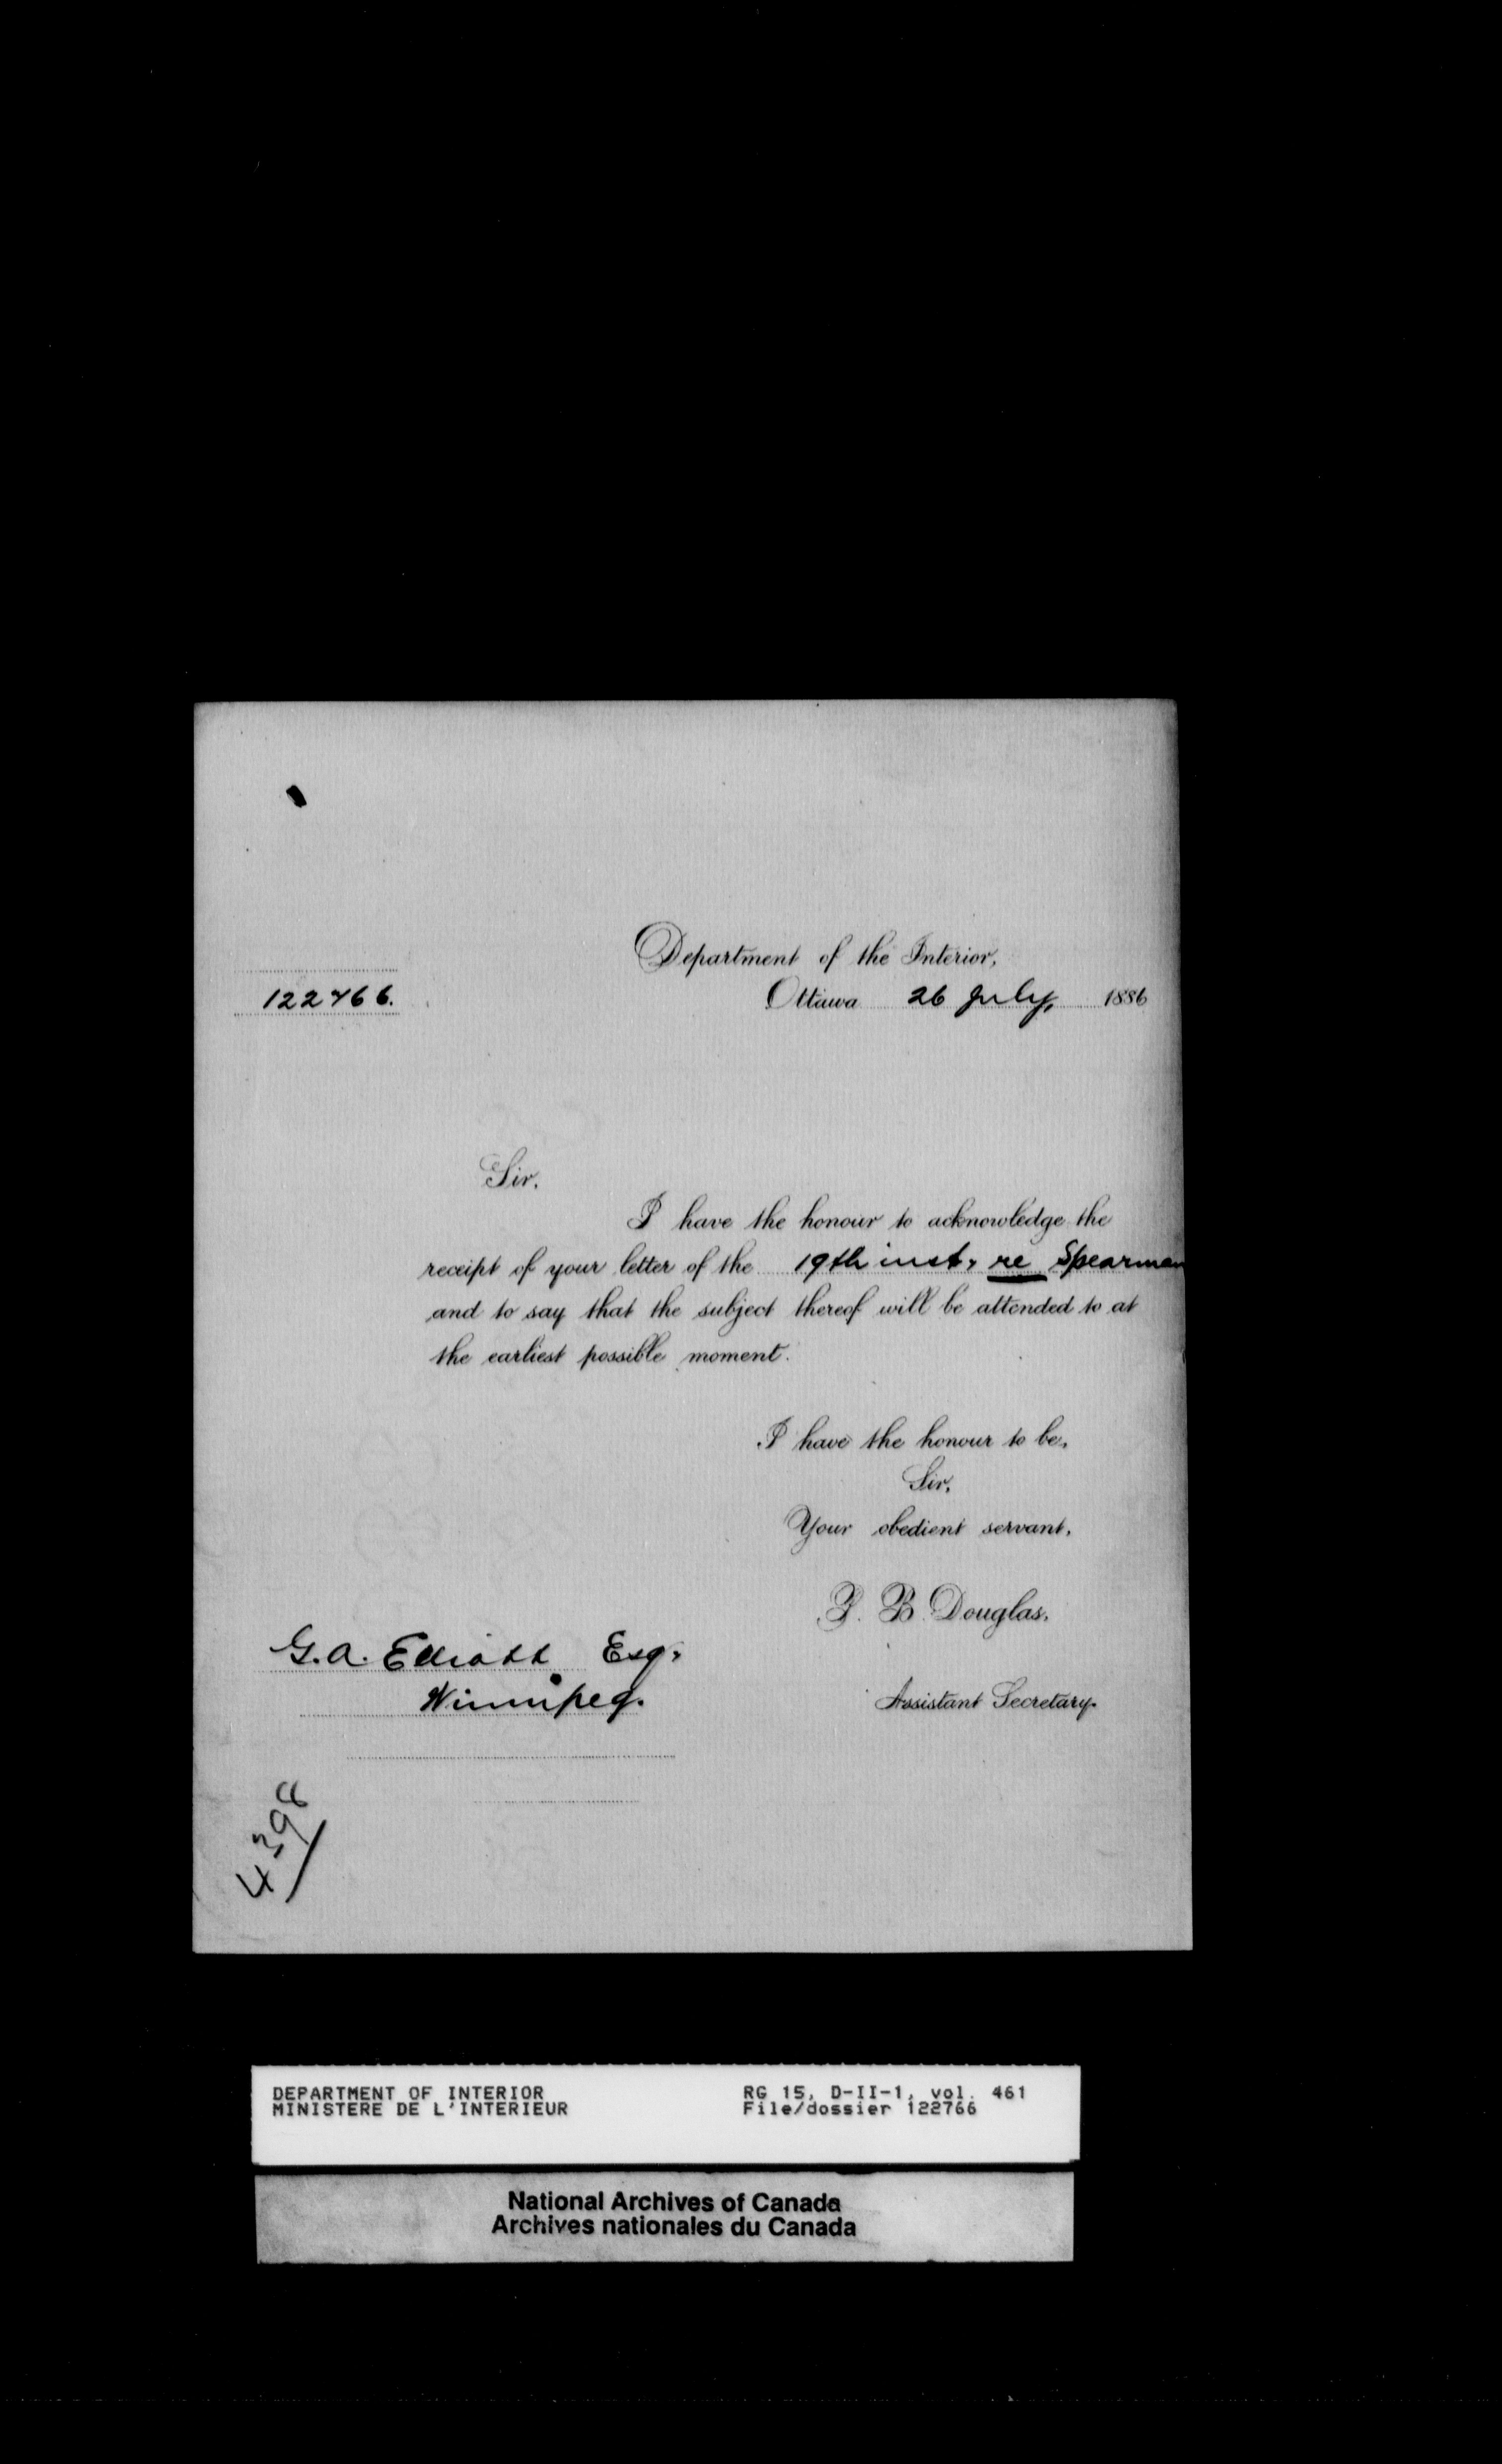 Department of the Interior,
122766.
Ottawa 26 July, 1886
Sir,
I have the honour to acknowledge the
receipt of your letter of the 19th inst. re Spearman
and to say that the subject thereof will be attended to at
the earliest possible moment.
I have the honour to be,
Sir,
Your obedient servant,
P. B. Douglas,
Assistant Secretary.
G. A. Elliott Esq.
Winnipeg.
4398
DEPARTMENT OF INTERIOR
MINISTERE DE L'INTERIEUR
RG 15, D-II-1, vol. 461
File/dossier 122766
National Archives of Canada
Archives nationales du Canada